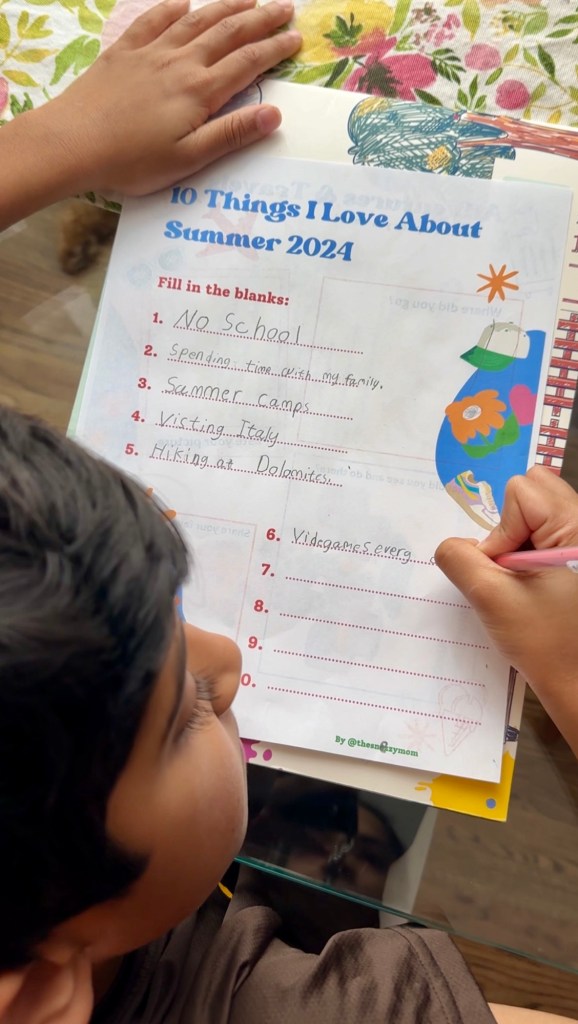 10 Things I Love About
Summer 2024
Fill in the blanks:
1. No School
2. Spending time with my family.
3. Summer camps
4. Visting Italy
5. Hiking at Dolomites.
6. Videgames everg
7.
8.
9.
0.
By @thesnazzymom
Where did you go?